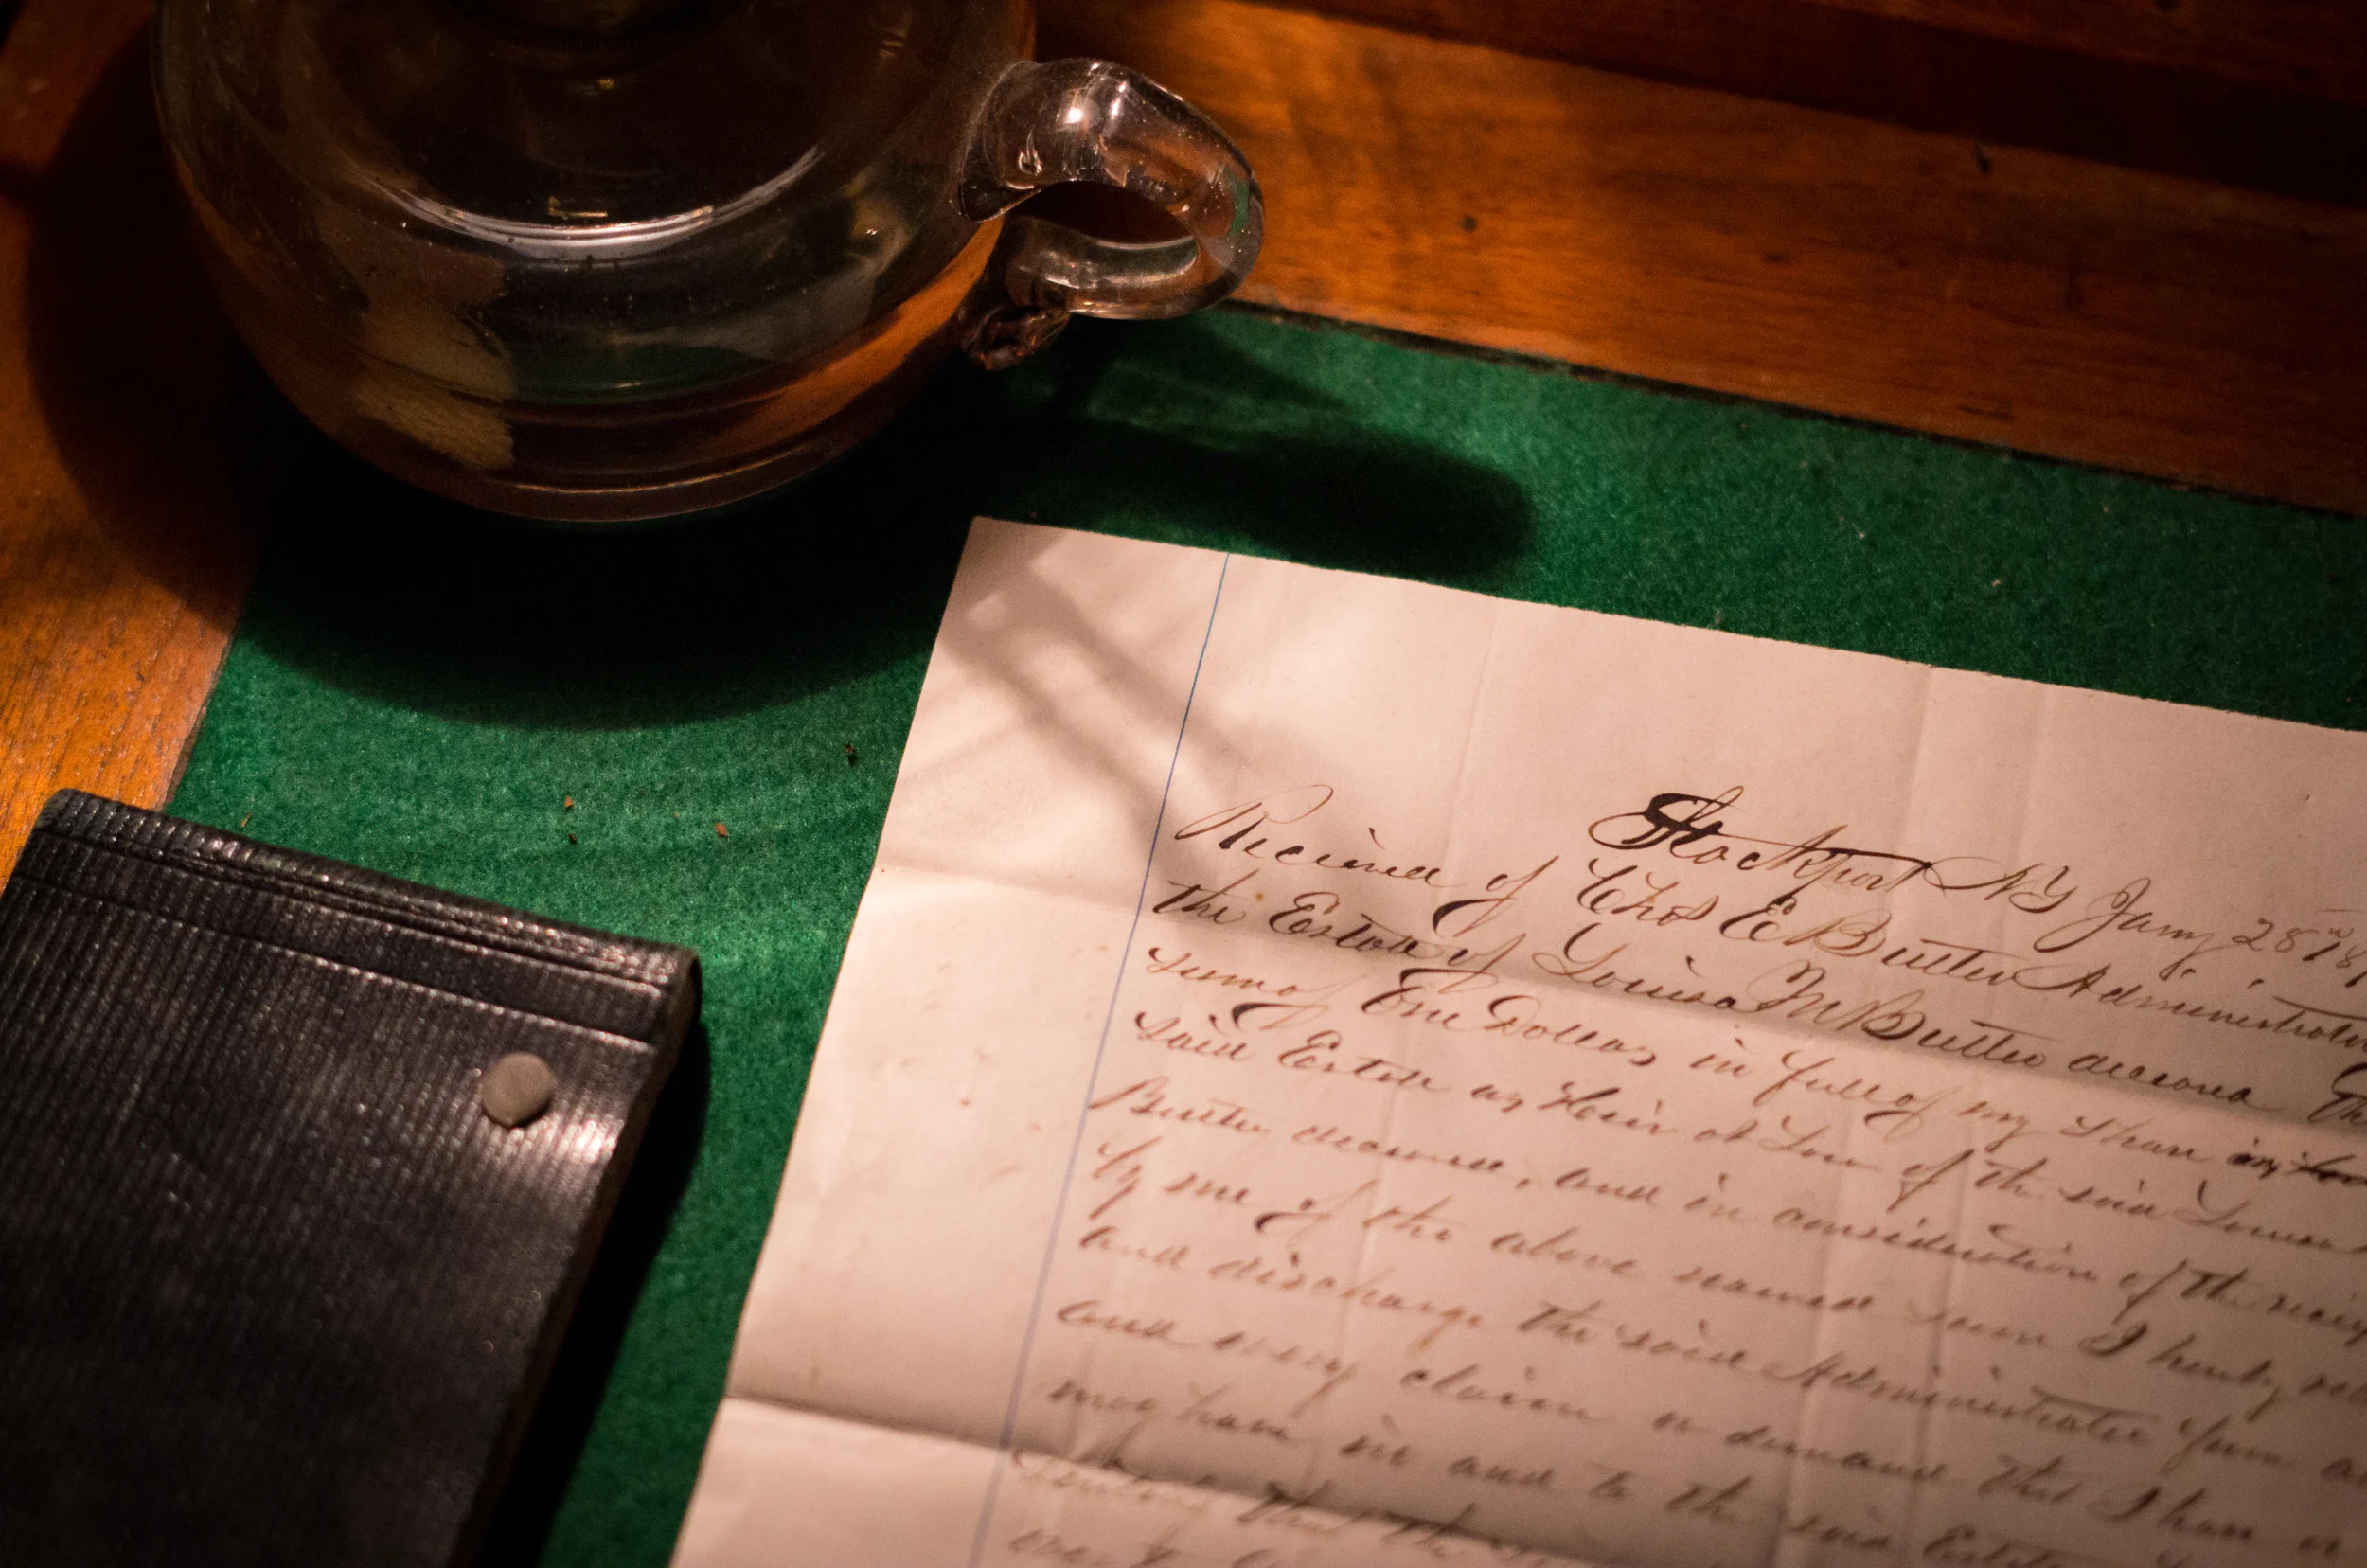 Stockport NY Jany 28th 18
Received of Chas E Butler Administrator
the Estate of Louisa M Butler deceased the
sum of One Dollar, in full of my share in
said Estate as Heir at Law of the said Louisa
Butler deceased, and in consideration of the
by me of the above named sum I hereby
and discharge the said Administrator from
and every claim or demand that I have or
may have in and to the said Estate
that the